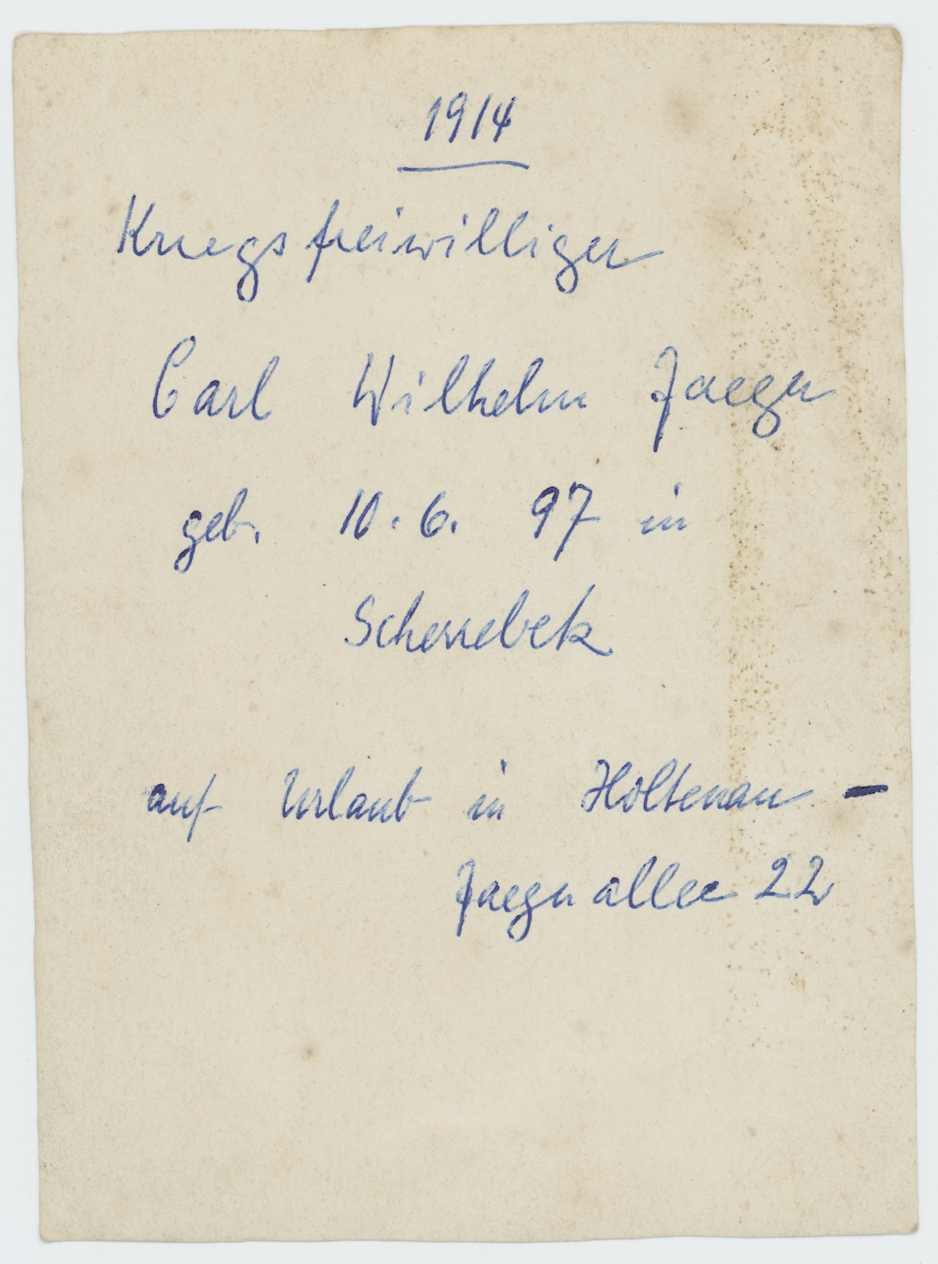 1914
Kriegsfreiwilliger
Carl Wilhelm Jaeger
geb. 10.6. 97 in
Scherrebek
auf Urlaub in Holtenau –
Jaegerallee 22